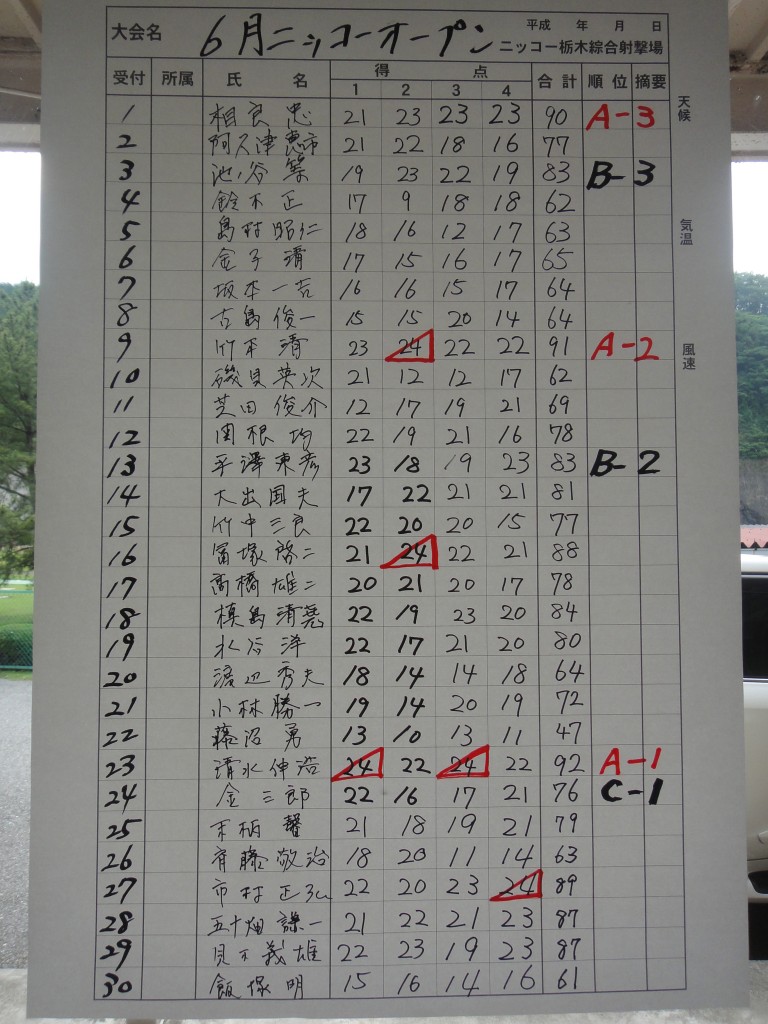 大会名 6月ニッコーオープン 平成 年 月 日
ニッコー栃木綜合射撃場
受付 所属 氏 名 得 点 合計 順位 摘要
1 2 3 4
1 相良 忠 21 23 23 23 90 A-3
2 阿久津恵市 21 22 18 16 77
3 池ノ谷 築 19 23 22 19 83 B-3
4 鈴木 正 17 9 18 18 62
5 島村昭仁 18 16 12 17 63
6 金子 清 17 15 16 17 65
7 坂本一吉 16 16 15 17 64
8 古島俊一 15 15 20 14 64
9 竹本 清 23 24 22 22 91 A-2
10 磯貝英次 21 12 12 17 62
11 芝田俊介 12 17 19 21 69
12 関根 均 22 19 21 16 78
13 平澤東彦 23 18 19 23 83 B-2
14 大出国夫 17 22 21 21 81
15 竹中三良 22 20 20 15 77
16 冨塚啓二 21 24 22 21 88
17 高橋雄二 20 21 20 17 78
18 槙島清尭 22 19 23 20 84
19 水谷 洋 22 17 21 20 80
20 渡辺秀夫 18 14 14 18 64
21 小林勝一 19 14 20 19 72
22 藤沼 勇 13 10 13 11 47
23 清水伸浩 24 22 24 22 92 A-1
24 金 三郎 22 16 17 21 76 C-1
25 末柄 馨 21 18 19 21 79
26 斉藤敬治 18 20 11 14 63
27 市村正弘 22 20 23 24 89
28 五十畑 謙一 21 22 21 23 87
29 貝木義雄 22 23 19 23 87
30 飯塚 明 15 16 14 16 61
天候
気温
風速